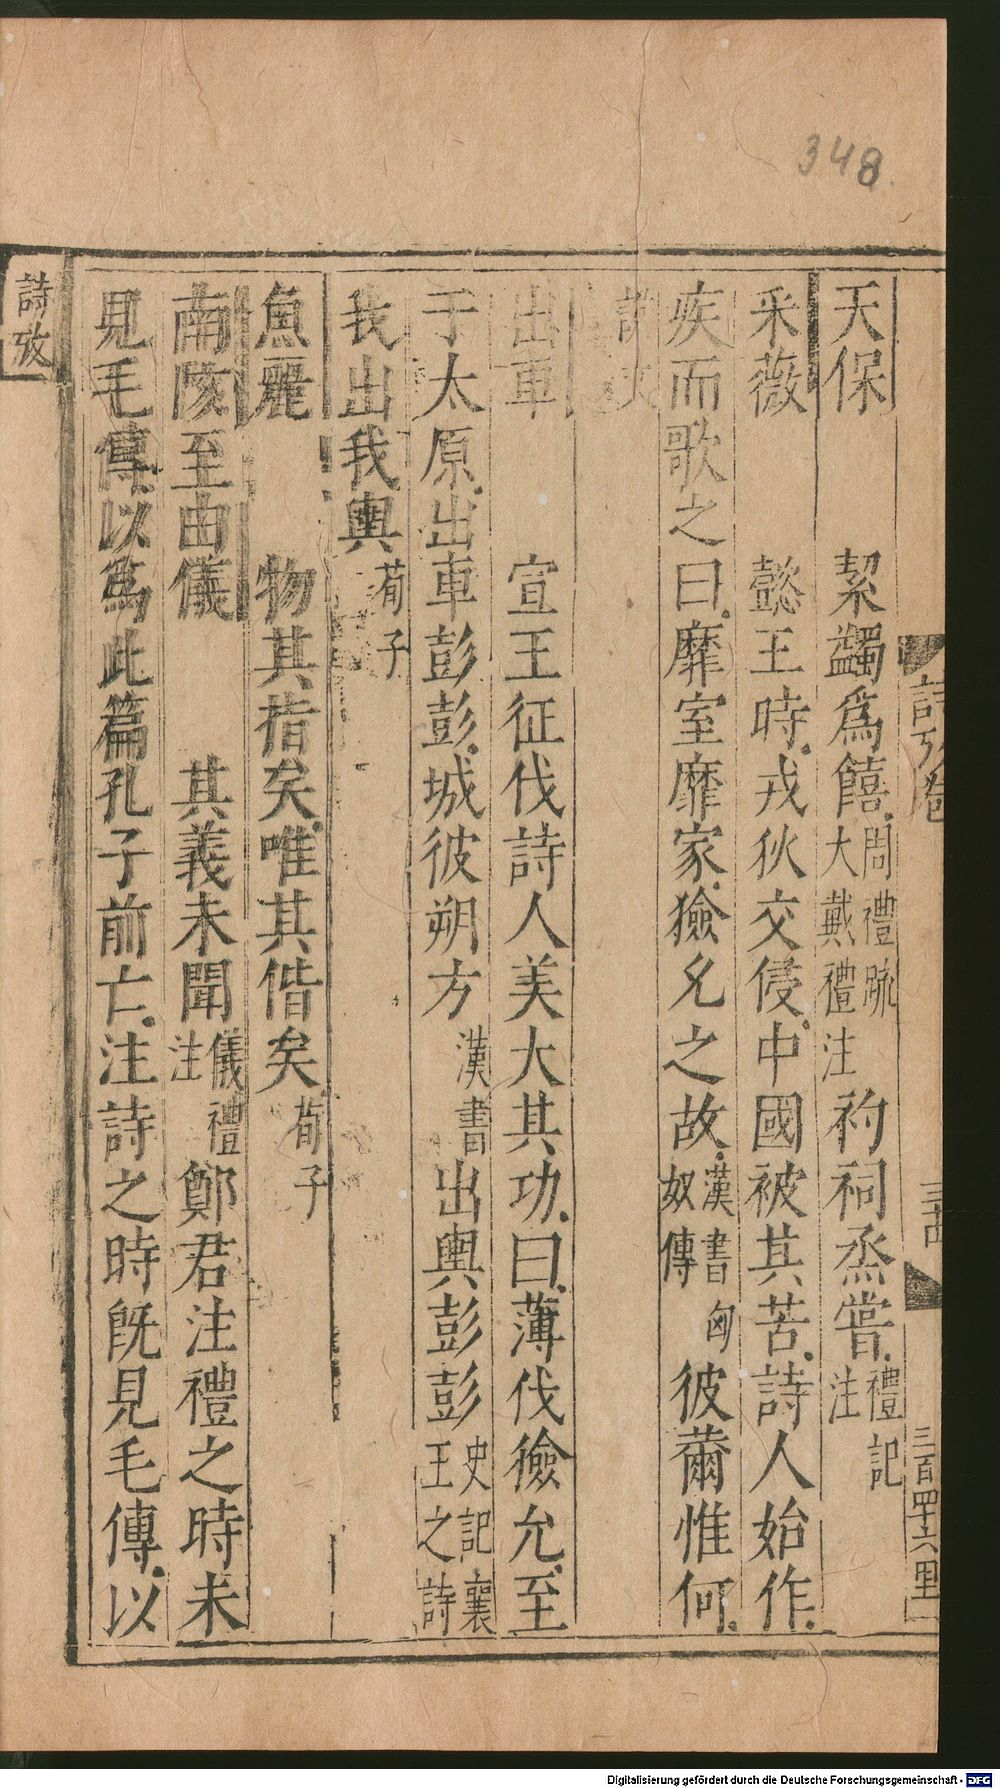 348
天保 絜蠲爲饎 周禮疏 大戴禮注 礿祠烝嘗 禮記注
采薇 懿王時戎狄交侵中國被其苦詩人始作
疾而歌之曰靡室靡家獫允之故 漢書匈奴傳 彼薾惟何
說文
出車 宣王征伐詩人美大其功曰薄伐獫允至
于太原出車彭彭城彼朔方 漢書 出輿彭彭 史記襄王之詩
我出我輿 荀子
魚麗 物其指矣唯其偕矣 荀子
南陔至由儀 其義未聞 儀禮注 鄭君注禮之時未
見毛傳以爲此篇孔子前亡注詩之時既見毛傳以
詩攷
Digitalisierung gefördert durch die Deutsche Forschungsgemeinschaft - DFG